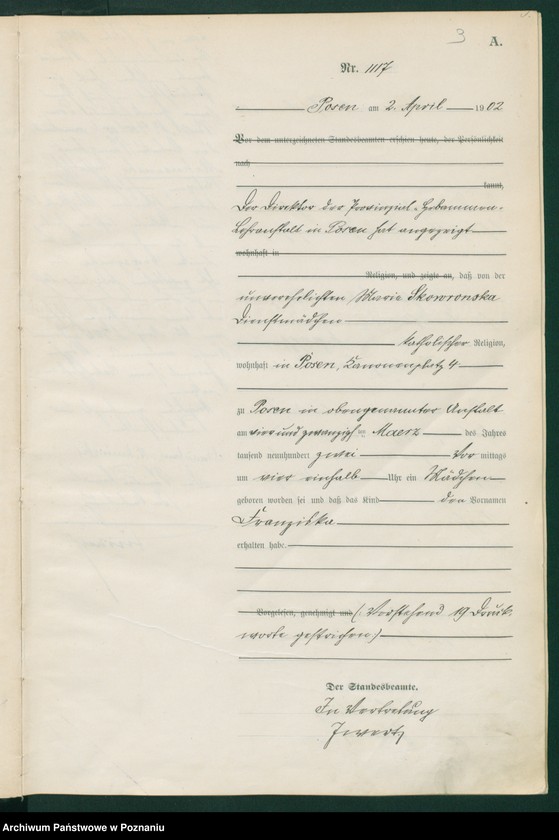 3 A.
Nr. 1117
Posen am 2. April 1902
Vor dem unterzeichneten Standesbeamten erschien heute, der Persönlichkeit
nach
kannt,
Der Direktor der Provinzial-Hebammen-
Lehranstalt in Posen hat angezeigt
wohnhaft in
Religion, und zeigte an, daß von der
unverehelichten Maria Skowronska
Dienstmädchen
katholischer Religion,
wohnhaft in Posen, Kanonenplatz 4
zu Posen in obengenannter Anstalt
am vier und zwanzigsten Maerz des Jahres
tausend neunhundert zwei Vor mittags
um vier einhalb Uhr ein Mädchen
geboren worden sei und daß das Kind den Vornamen
Franziska
erhalten habe.
Vorgelesen, genehmigt und (Vorstehend 19 Druck-
worte gestrichen)
Der Standesbeamte.
In Vertretung
Archiwum Państwowe w Poznaniu